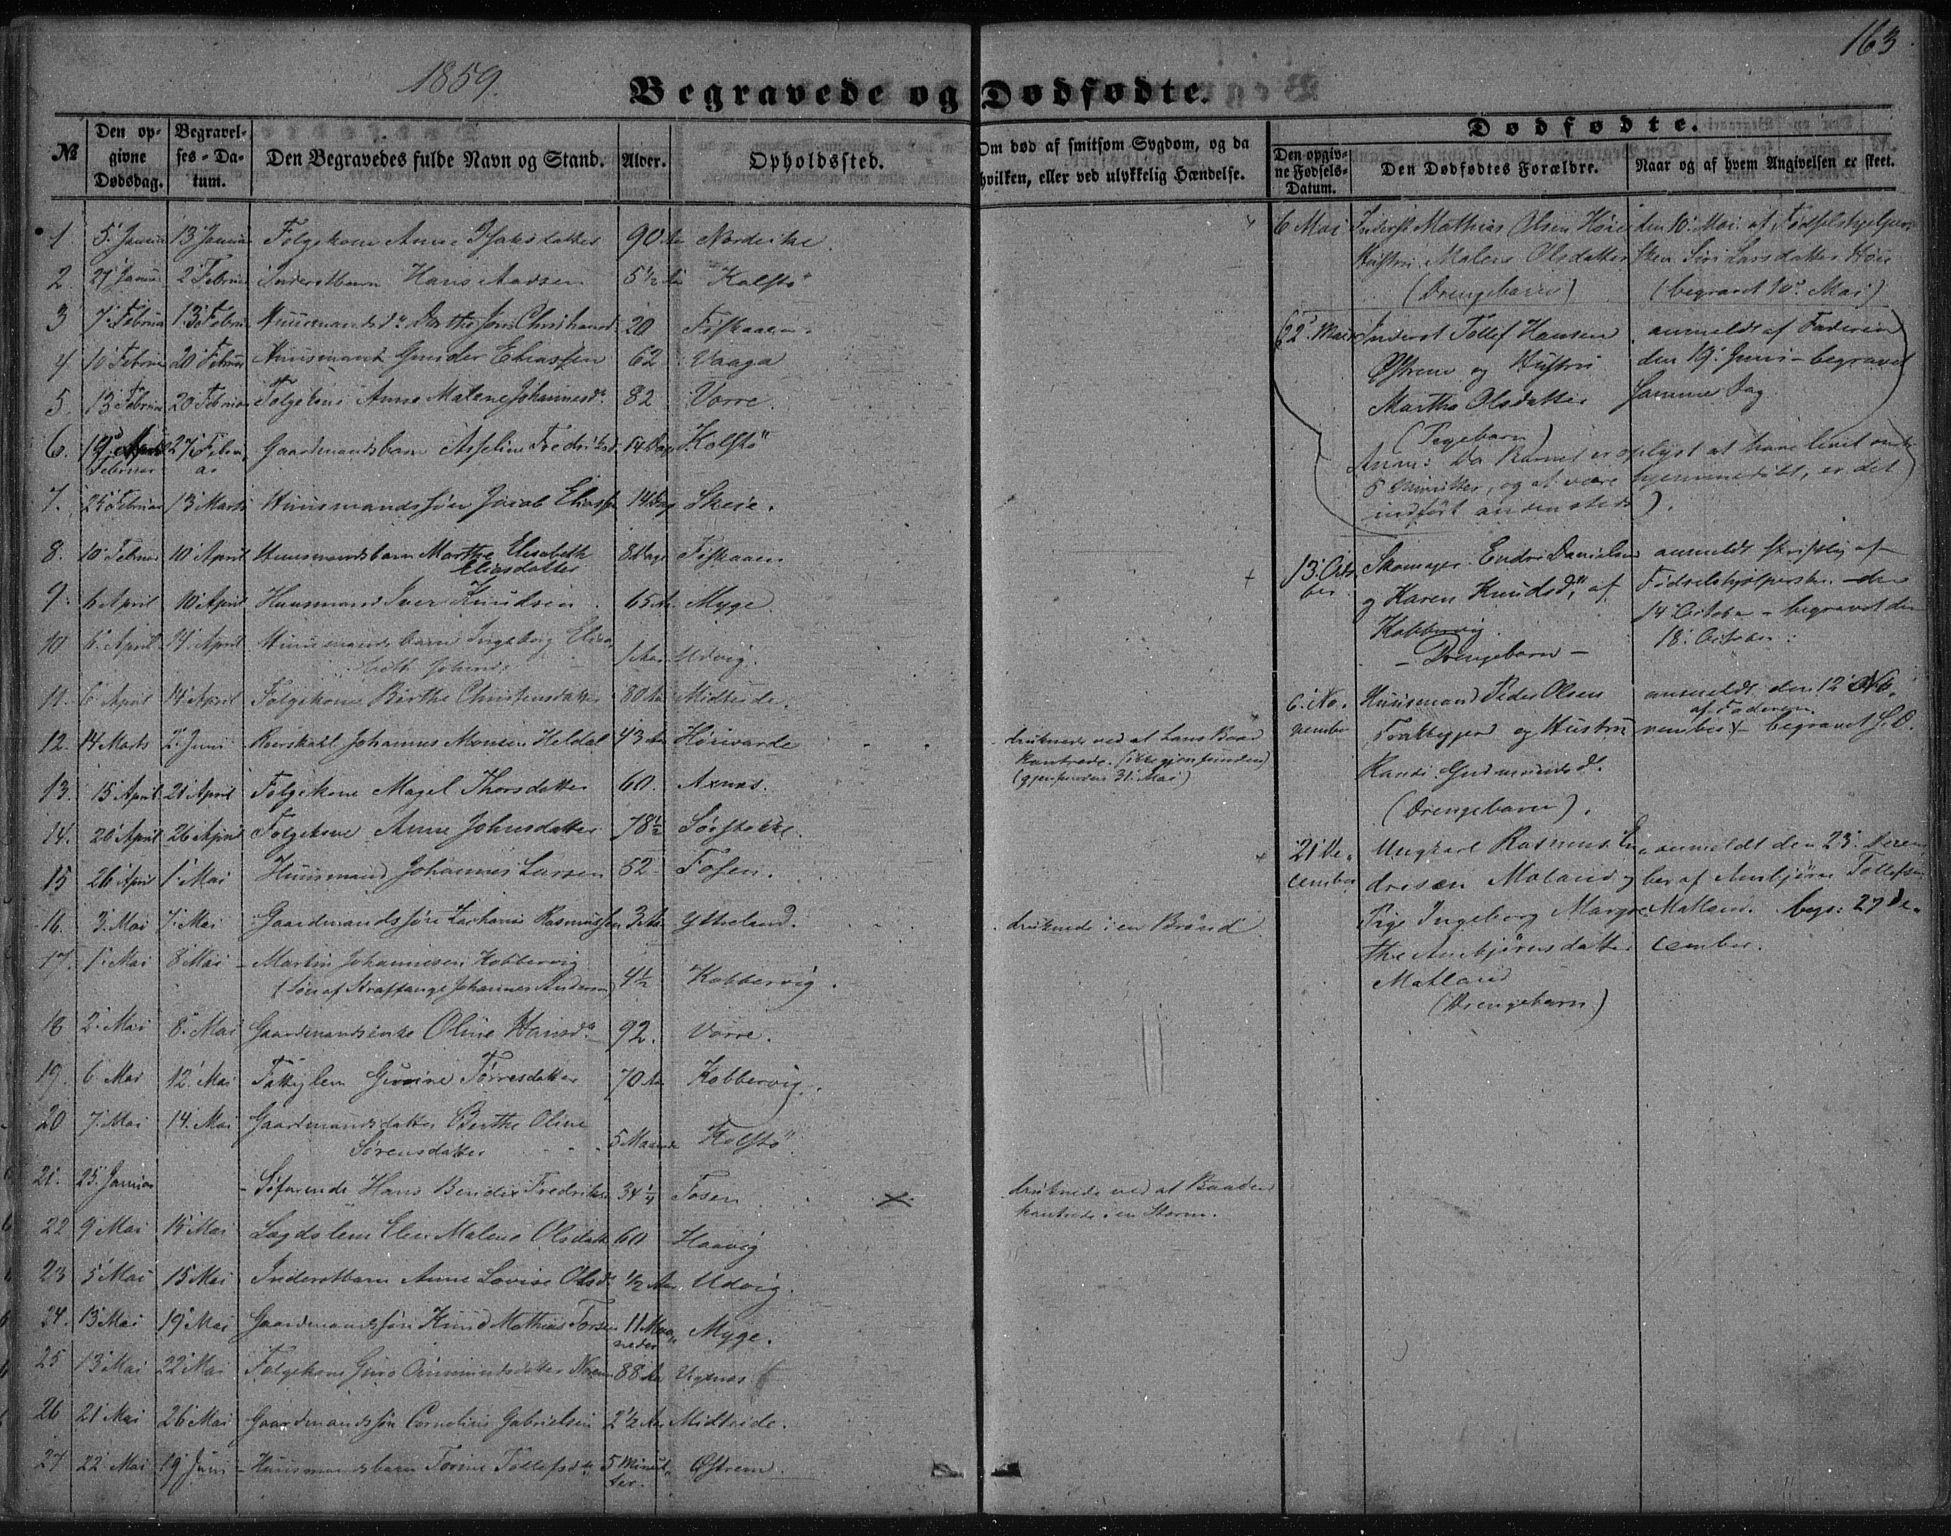 163
1859.
Begravede og Dødfødte.
Dødfødte.
№ Den opgivne Dødsdag. Begravelses-Datum. Den Begravedes fulde Navn og Stand. Alder. Opholdssted. Om død af smitsom Sygdom, og da hvilken, eller ved ulykkelig Hændelse.
Den opgivne Fødsels-Datum. Den Dødfødtes Forældre. Naar og af hvem Angivelsen er skeet.
1. 5. Januar 13 Januar Folgekone Anne 90 Aar
2. 27 Januar 2 Februar Inderstbarn Hans Aadsen 5 1/2 Aar Kolstø
3 7. Februar 13 Februar Huusmandsd. Berthe 20 Fiskaaen.
4 10 Februar 20 Februar Huusmand Gunder Eliassen 62 Vaaga
5. 13 Februar 20 Februar Folgekone Anne Malene Johannesd. 82 Vorre.
6. 19 Februar 27 Februar Gaardmandsbarn Asseline Fredriksd. 14 Dage Kolstø
7. 25 Februar 13 Marts Huusmandssøn Jacob Eliassen 14 Dage Skeie.
8. 10 Februar 10 April Huusmandsbarn Marthe Elisabeth
Eliasdatter 8 Dage Fiskaaen
9. 6 April 10 April Huusmand Iver Knudsen 65 Aar Myge.
10 6 April 14 April Huusmandsbarn Ingeborg Elisa-
beth Johnsd. 1 Aar Udvig.
11. 6 April 14 April Folgekone Birthe Christensdatter 80 Aar Midteide.
12. 14 Marts 2. Juni Johannes Monsen Heldal 43 Aar Høievarde druknede ved at hans Baad
kantrede. (ikke gjenfunden)
(gjenfunden 31. Mai)
13. 15 April 21 April Folgekone Magel Thorsdatter 60. Axnæs.
14. 20 April 26 April Folgekone Anne Johnsdatter 78 1/2 Sørstokke.
15 26 April 1 Mai Huusmand Johannes Larsen 52 Fosen.
16. 3. Mai 7. Mai Gaardmandssøn Zacharias Rasmussen 3 Aar Ytreland. druknede i en Brønd
17. 1. Mai 8 Mai Martin Johannesen Kobbervig
(Søn af Straffange Johannes Andersen) 4 1/2 Kobbervig.
18 2. Mai 8. Mai Gaardmandsenke Oline Hansd. 92. Vorre.
19. 6 Mai 12. Mai Fattiglem Gurine Tørresdatter 70 Aar Kobbervig.
20 7. Mai 14. Mai Gaardmandsdatter Berthe Oline
Sørensdatter 5 Maaneder Kolstø
21. 25. Januar Søfarende Hans Bendix Fredriksen 34 1/4 Fosen druknede ved at Baaden
kantrede i en Storm.
22 9 Mai 15 Mai Lægdslem Elen Malene Olsdatter 60 Haavig
23 5 Mai 15 Mai Inderstbarn Anne Lovise Olsd. 1/2 Aar Udvig.
24. 13 Mai 19 Mai Gaardmandssøn Knud Mathias 11 Maa-
neder Myge.
25 13 Mai 22 Mai Folgekone Guro 88 Aar
26 21 Mai 26 Mai Gaardmandssøn Cornelius Gabrielsen 2 1/2 Aar Midteide.
27 22 Mai 19 Juni Huusmandsbarn Torine Tollefsd. 5 Minut-
ter. Østrem
6 Mai Inderst Mathias Olsen Høie den 10. Mai af Fødselshjelper-
Hustru Malene Olsdatter sken Siri Larsdatter Høie
(Drengebarn) (begravet 10. Mai)
22. Mai Inderst Tollef Hansen anmeldt af Faderen
Østrem og Hustru den 19. Juni - begravet
Martha Olsdatter Samme Dag
(Pigebarn)
Anm: Da Barnet er oplyst at have levet omtr.
5 Minutter, og at være hjemmedøbt, er det
indført andensteds).
13. Octo-
ber Skomager Endre Danielsen anmeldt skriftlig af
og Karen Knudsd. af Fødselshjelpersken den
Kobbervig. 14 October - begravet den
- Drengebarn - 18. October.
6. No-
vember Huusmand Peder Olsen anmeldt den 12 No-
af Faderen
og Hustru vember - begravet S. D.
Randi Gudmundsd.
(Drengebarn).
21 De-
cember Ungkarl Rasmus En- anmeldt den 23. Decem-
dresen Matland og ber af Anbjørn Tollefsen
Pige Ingeborg Margre- Matland. begr: 27 De-
the Anbjørnsdatter cember.
Matland
(Drengebarn)